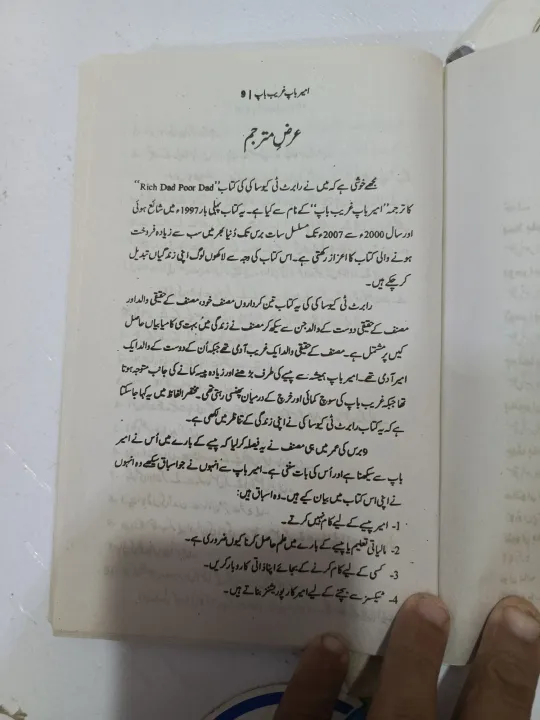 امیر باپ غریب باپ | 9
عرضِ مترجم
مجھے خوشی ہے کہ میں نے رابرٹ ٹی کیوساکی کی کتاب "Rich Dad Poor Dad"
کا ترجمہ "امیر باپ غریب باپ" کے نام سے کیا ہے۔ یہ کتاب پہلی بار 1997ء میں شائع ہوئی
اور سال 2000ء سے 2007ء تک مسلسل سات برس تک دُنیا بھر میں سب سے زیادہ فروخت
ہونے والی کتاب کا اعزاز رکھتی ہے۔ اس کتاب کی وجہ سے لاکھوں لوگ اپنی زندگیاں تبدیل
کر چکے ہیں۔
رابرٹ ٹی کیوساکی کی یہ کتاب تین کرداروں مصنف خود، مصنف کے حقیقی والد اور
مصنف کے حقیقی دوست کے والد جن سے سیکھ کر مصنف نے زندگی میں بہت سی کامیابیاں حاصل
کیں پر مشتمل ہے۔ مصنف کے حقیقی والد ایک غریب آدمی تھے جبکہ اُن کے دوست کے والد ایک
امیر آدمی تھے۔ امیر باپ ہمیشہ سے پیسے کی طرف بڑھنے اور زیادہ پیسہ کمانے کی جانب متوجہ ہوتا
تھا جبکہ غریب باپ کی سوچ کمائی اور خرچ کے درمیان پھنسی رہتی تھی۔ مختصر الفاظ میں یہ کہا جا سکتا
ہے کہ یہ کتاب رابرٹ ٹی کیوساکی نے اپنی زندگی کے تناظر میں لکھی ہے۔
9 برس کی عمر میں ہی مصنف نے یہ فیصلہ کر لیا کہ پیسے کے بارے میں اُس نے امیر
باپ سے سیکھنا ہے اور اُس کی بات سننی ہے۔ امیر باپ سے اُنہوں نے جو اسباق سیکھے وہ انہوں
نے اپنی اس کتاب میں بیان کیے ہیں۔ وہ اسباق ہیں:
1- امیر پیسے کے لیے کام نہیں کرتے۔
2- مالیاتی تعلیم یا پیسے کے بارے میں علم حاصل کرنا کیوں ضروری ہے۔
3- کسی کے لیے کام کرنے کے بجائے اپنا ذاتی کاروبار کریں۔
4- ٹیکسز سے بچنے کے لیے امیر کارپوریشنز بناتے ہیں۔